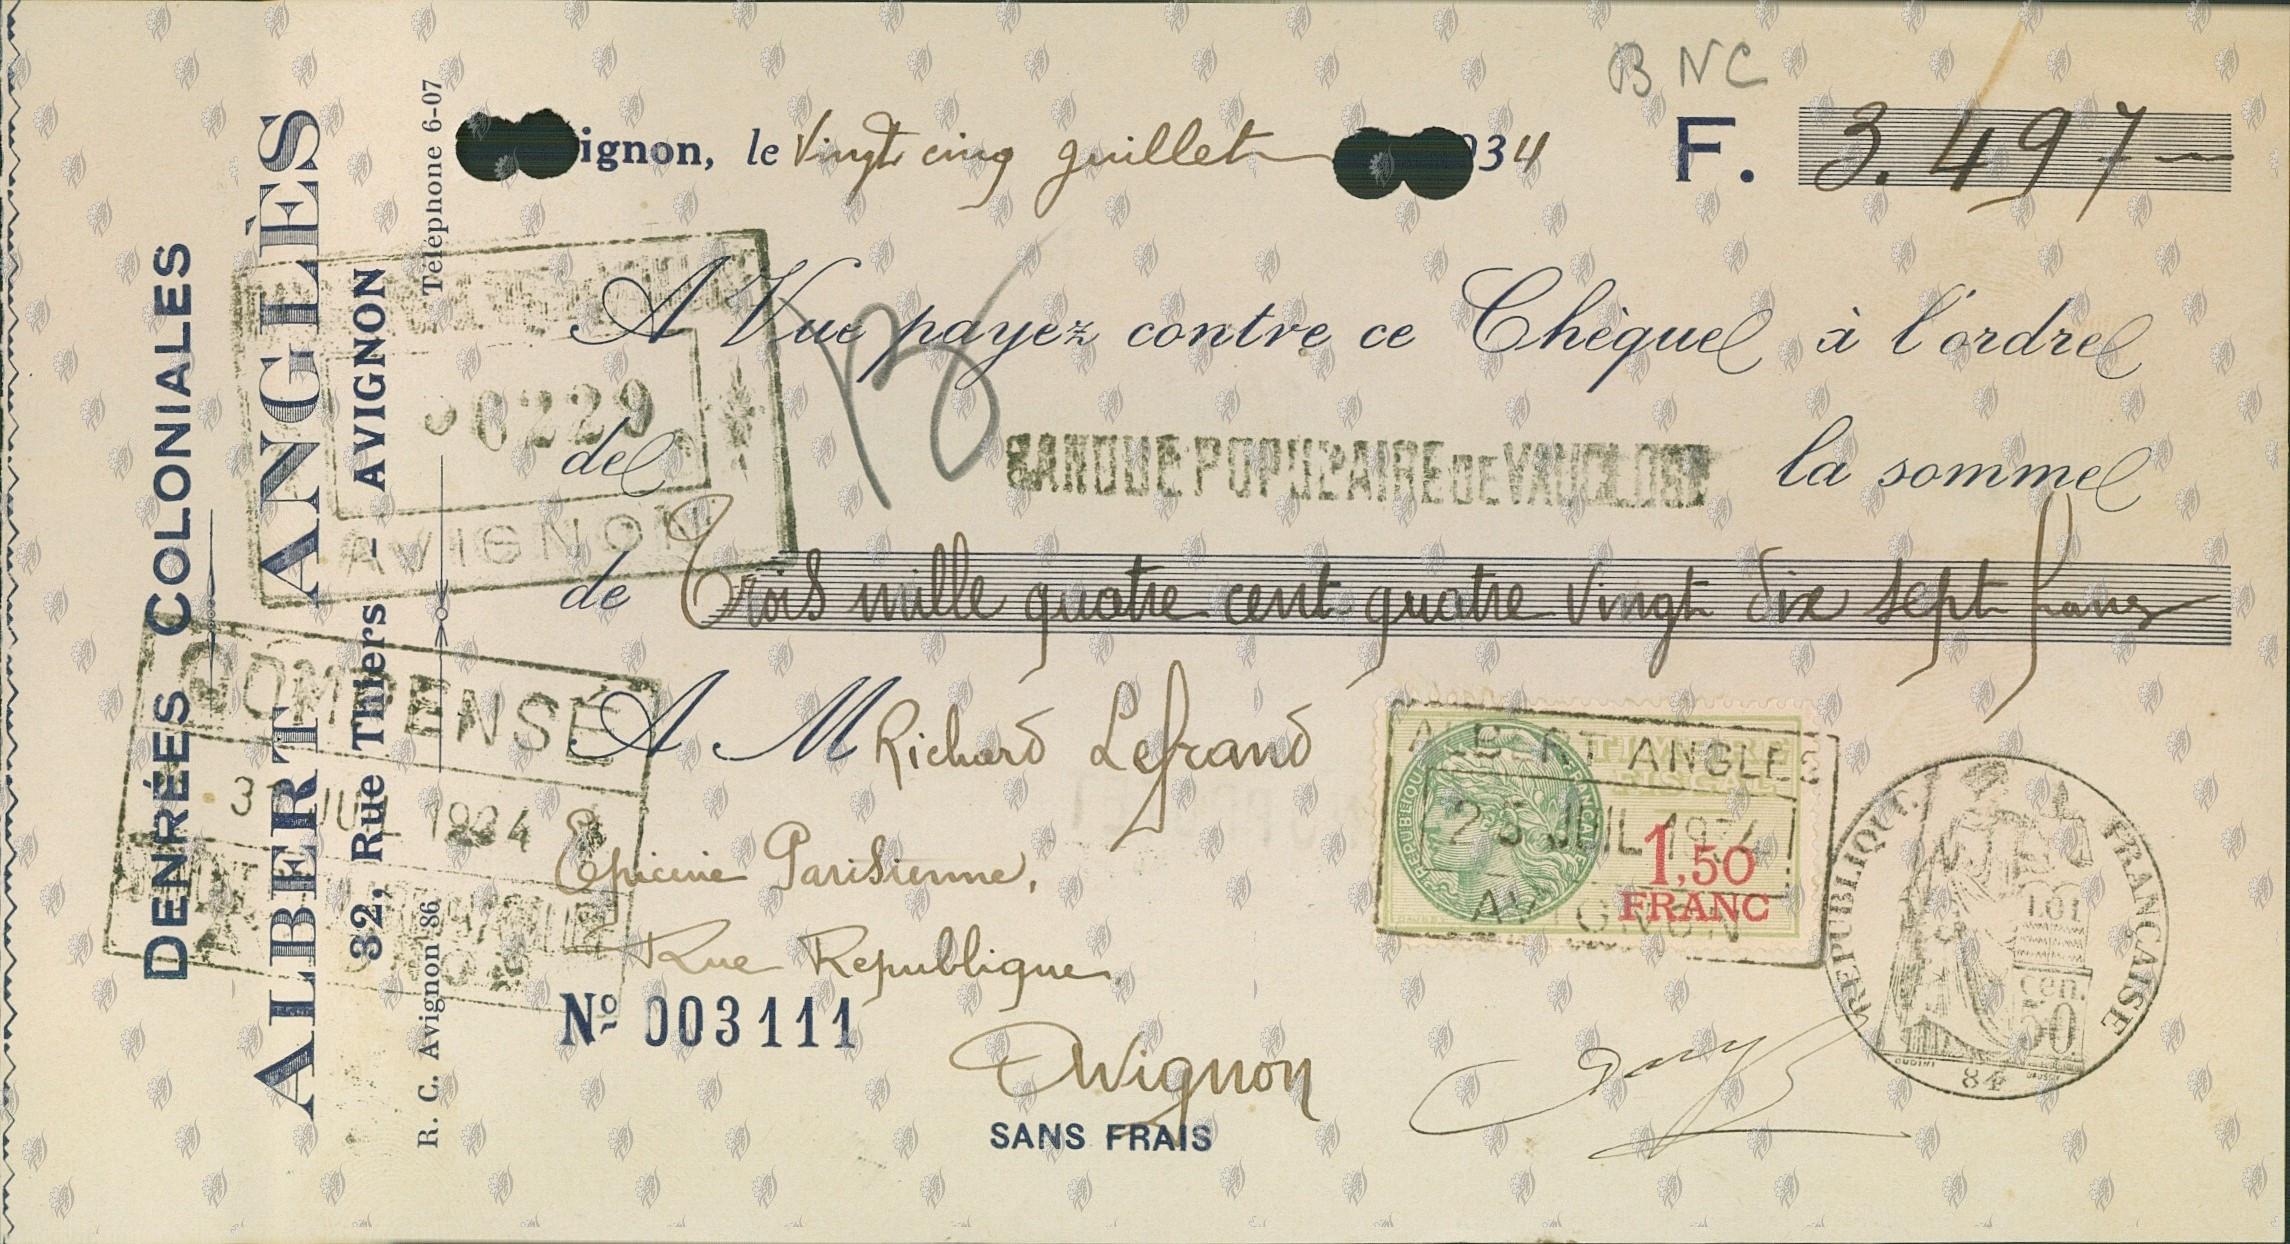 DENRÉES COLONIALES
ALBERT ANGLÈS
32, Rue Thiers - AVIGNON
R. C. Avignon 86
Téléphone 6-07
BNC
ignon, le Vingt cinq juillet 34
F. 3.497
A Vue payez contre ce Chèque à l'ordre
6229
de BANQUE POPULAIRE DE VAUCLUSE la somme
AVIGNON
de Trois mille quatre cent quatre vingt dix sept francs
COMPENSÉ
A M Richard Lefrand
Epicerie Parisienne,
Rue Republique
No 003111
Avignon
SANS FRAIS
TIMBRE FISCAL
RÉPUBLIQUE FRANÇAISE
1,50
FRANC
ALBERT ANGLES
25 JUIL 1934
AVIGNON
RÉPUBLIQUE FRANÇAISE
1.01
cen.
50
84